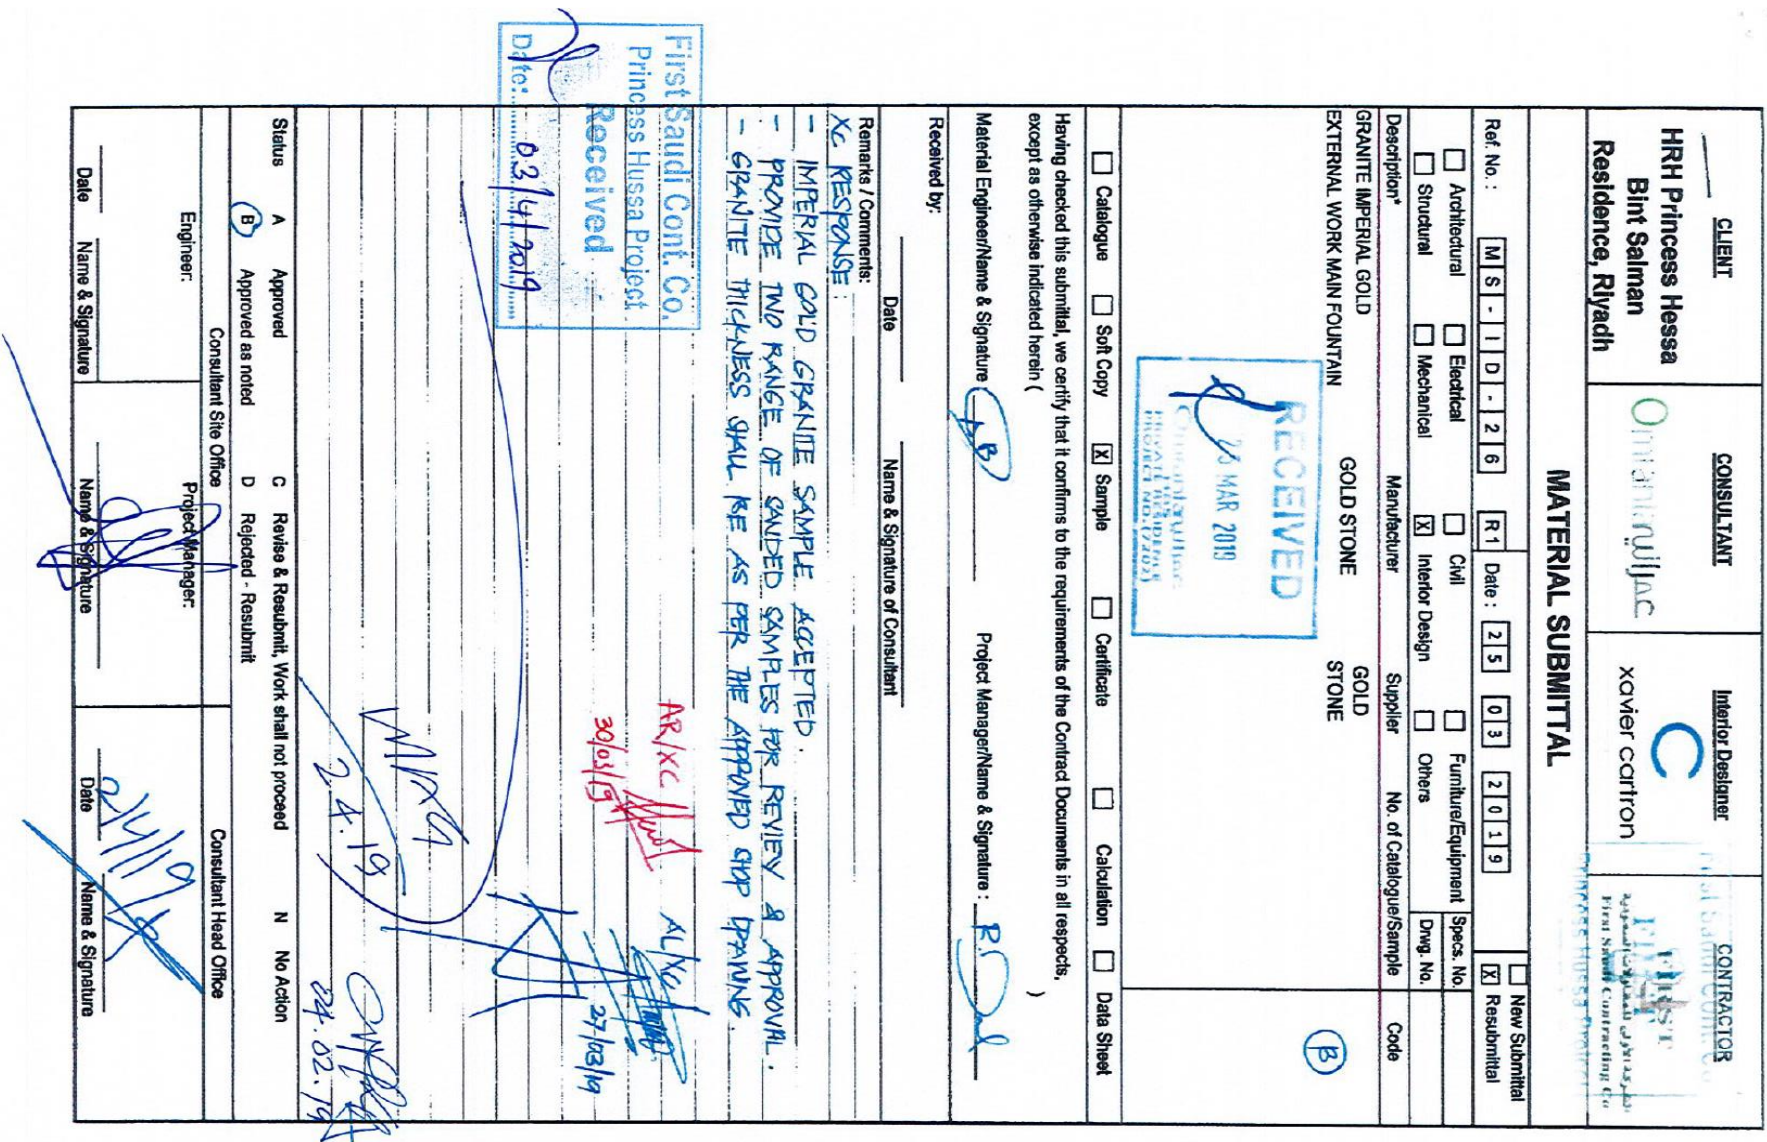 CLIENT
CONSULTANT
Interior Designer
CONTRACTOR
HRH Princess Hessa
Bint Salman
Residence, Riyadh
Omrania عمرانية
xavier cartron
First Saudi Contracting Co
MATERIAL SUBMITTAL
Ref. No.: MS-ID-26 R1 Date: 25 03 2019
New Submittal
X Resubmittal
Architectural Electrical Civil Furniture/Equipment Specs. No.
Structural Mechanical X Interior Design Others Drwg. No.
Description* Manufacturer Supplier No. of Catalogue/Sample Code
GRANITE IMPERIAL GOLD
EXTERNAL WORK MAIN FOUNTAIN
GOLD STONE
GOLD
STONE
B
RECEIVED
MAR 2019
PROJECT NO.(7202)
Catalogue Soft Copy X Sample Certificate Calculation Data Sheet
Having checked this submittal, we certify that it confirms to the requirements of the Contract Documents in all respects,
except as otherwise indicated herein ( )
Material Engineer/Name & Signature : Project Manager/Name & Signature :
Received by:
Date Name & Signature of Consultant
Remarks / Comments:
XC RESPONSE:
- IMPERIAL GOLD GRANITE SAMPLE ACCEPTED.
- PROVIDE TWO RANGE OF SANDED SAMPLES FOR REVIEW & APPROVAL.
- GRANITE THICKNESS SHALL BE AS PER THE APPROVED SHOP DRAWING.
First Saudi Cont. Co.
Princess Hussa Project
Received
Date: 03/4/2019
AR/XC
30/03/19
AL/XC
27/03/19
2.4.19
Status A Approved C Revise & Resubmit, Work shall not proceed N No Action
B Approved as noted D Rejected - Resubmit
Consultant Site Office Consultant Head Office
Engineer: Project Manager:
2/4/19
Date Name & Signature Name & Signature Date Name & Signature